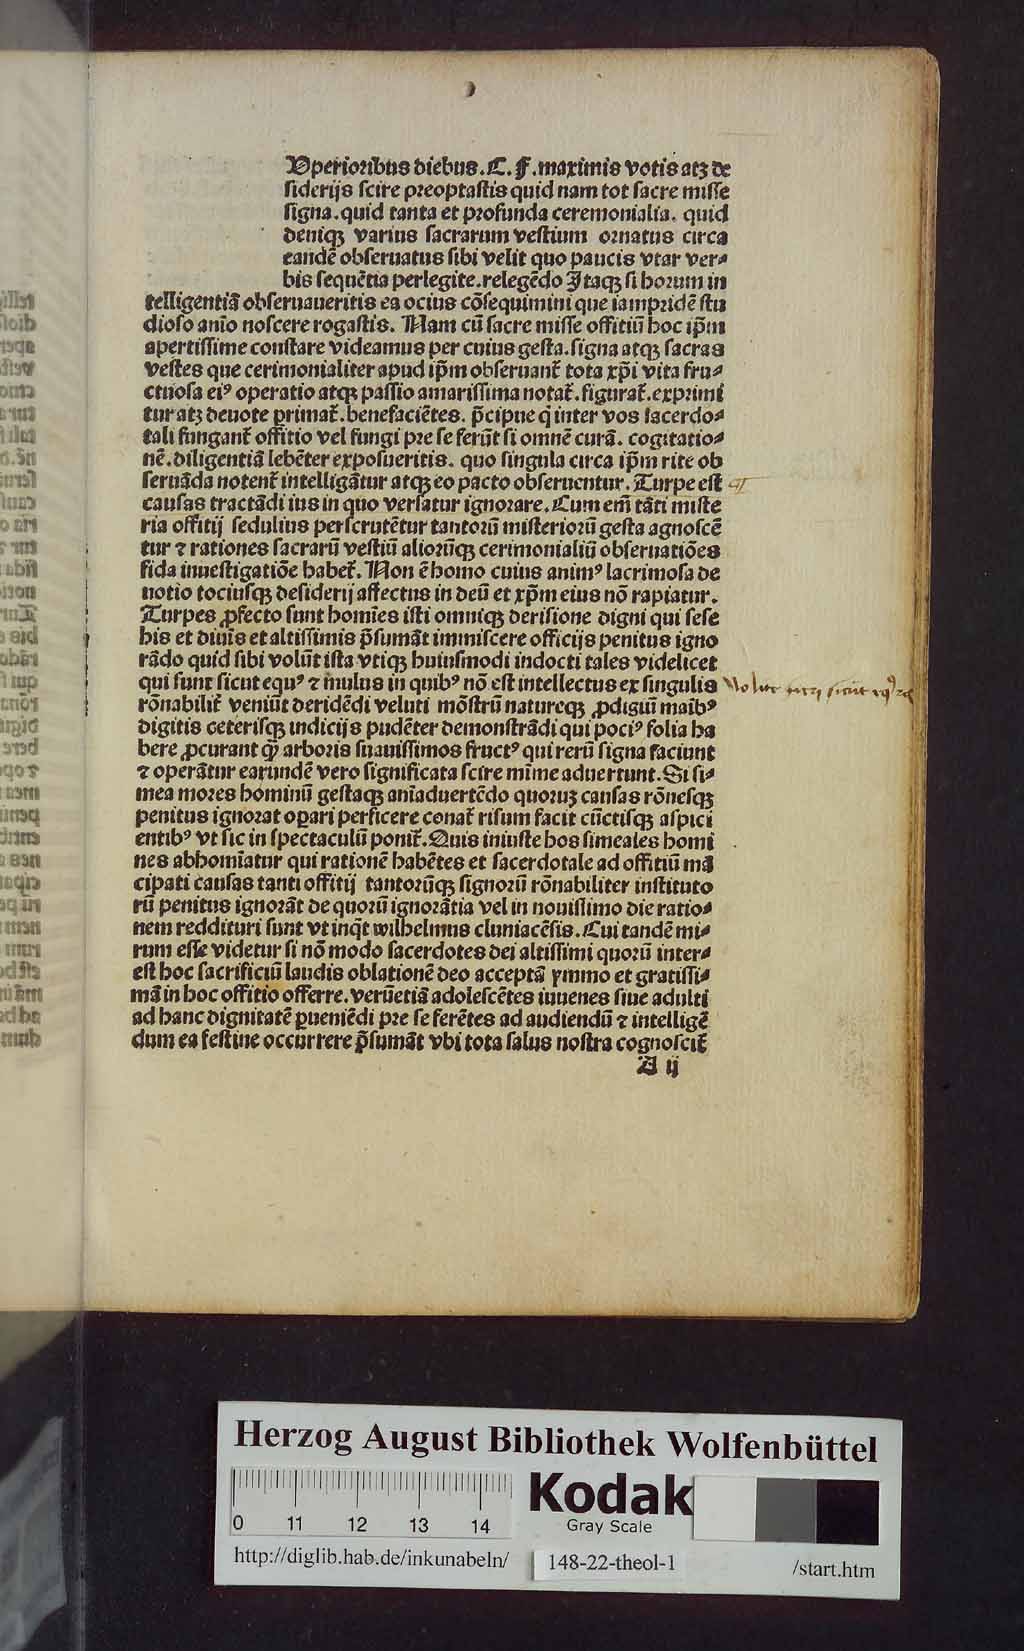 Uperioribus diebus. C. F. maximis votis atꝫ de
siderijs scire preoptastis quid nam tot sacre misse
signa. quid tanta et profunda ceremonialia. quid
deniqꝫ varius sacrarum vestium ornatus circa
eandē obseruatus sibi velit quo paucis vtar ver⸗
bis sequētia perlegite. relegēdo Itaqꝫ si horum in
telligentiā obseruaueritis ea ocius cōsequimini que iampridē stu
dioso anīo noscere rogastis. Nam cū sacre misse offitiū hoc ip̄m
apertissime constare videamus per cuius gesta. signa atqꝫ sacras
vestes que cerimonialiter apud ip̄m obseruant᷑ tota xp̄i vita fru⸗
ctuosa eiꝰ operatio atqꝫ passio amarissima notat᷑. figurat᷑. exprimi
tur atꝫ deuote ꝑrimat᷑. benefaciētes. p̄cipue q̇ inter vos sacerdo⸗
tali fungant᷑ offitio vel fungi pre se ferūt si omnē curā. cogitatio⸗
nē. diligentiā lebēter exposueritis. quo singula circa ip̄m rite ob
seruāda notent᷑ intelligātur atqꝫ eo pacto obseruentur. Turpe est
causas tractādi ius in quo versatur ignorare. Cum em̄ tāti miste
ria offitij sedulius perscrutētur tantorū misteriorū gesta agnoscē
tur ⁊ rationes sacrarū vestiū aliorūqꝫ cerimonialiū obseruatiōes
fida inuestigatiōe habet᷑. Non ē homo cuius animꝰ lacrimosa de
uotio tociusqꝫ desiderij affectus in deū et xp̄m eius nō rapiatur.
Turpes ꝓfecto sunt homīes isti omniqꝫ derisione digni qui sese
his et diuīs et altissimis p̄sumāt immiscere officijs penitus igno
rādo quid sibi volūt ista vtiqꝫ huiusmodi indocti tales videlicet
qui sunt sicut equꝰ ⁊ mulus in quibꝰ nō est intellectus ex singulis
rōnabilit᷑ veniūt deridēdi veluti mōstrū natureqꝫ ꝓdigiū maībꝰ
digitis ceterisqꝫ indicijs pudēter demonstrādi qui pociꝰ folia ha
bere ꝓcurant q̄ꝫ arboris suauissimos fructꝰ qui rerū signa faciunt
⁊ operātur earundē vero significata scire mīme aduertunt. Si si⸗
mea mores hominū gestaqꝫ anīaduertēdo quoruꝫ causas rōnesqꝫ
penitus ignorat oꝑari perficere conat᷑ risum facit cūctisqꝫ aspici
entibꝰ vt sic in spectaculū ponit᷑. Quis iniuste hos simeales homi
nes abhomīatur qui rationē habētes et sacerdotale ad offitiū mā
cipati causas tanti offitij tantorūqꝫ signorū rōnabiliter instituto
rū penitus ignorāt de quorū ignorātia vel in nouissimo die ratio⸗
nem reddituri sunt vt inq̄t wilhelmus cluniacēsis. Cui tandē mi⸗
rum esse videtur si nō modo sacerdotes dei altissimi quorū inter⸗
est hoc sacrificiū laudis oblationē deo acceptā ymmo et gratissi⸗
mā in hoc offitio offerre. verūetiā adolescētes iuuenes siue adulti
ad hanc dignitatē ꝑueniēdi pre se ferētes ad audiendū ⁊ intelligē
dum ea festine occurrere p̄sumāt vbi tota salus nostra cognoscit᷑
A ij
Nolite fieri sicut eqꝰ
Herzog August Bibliothek Wolfenbüttel
0 11 12 13 14
Kodak
Gray Scale
http://diglib.hab.de/inkunabeln/ 148-22-theol-1 /start.htm